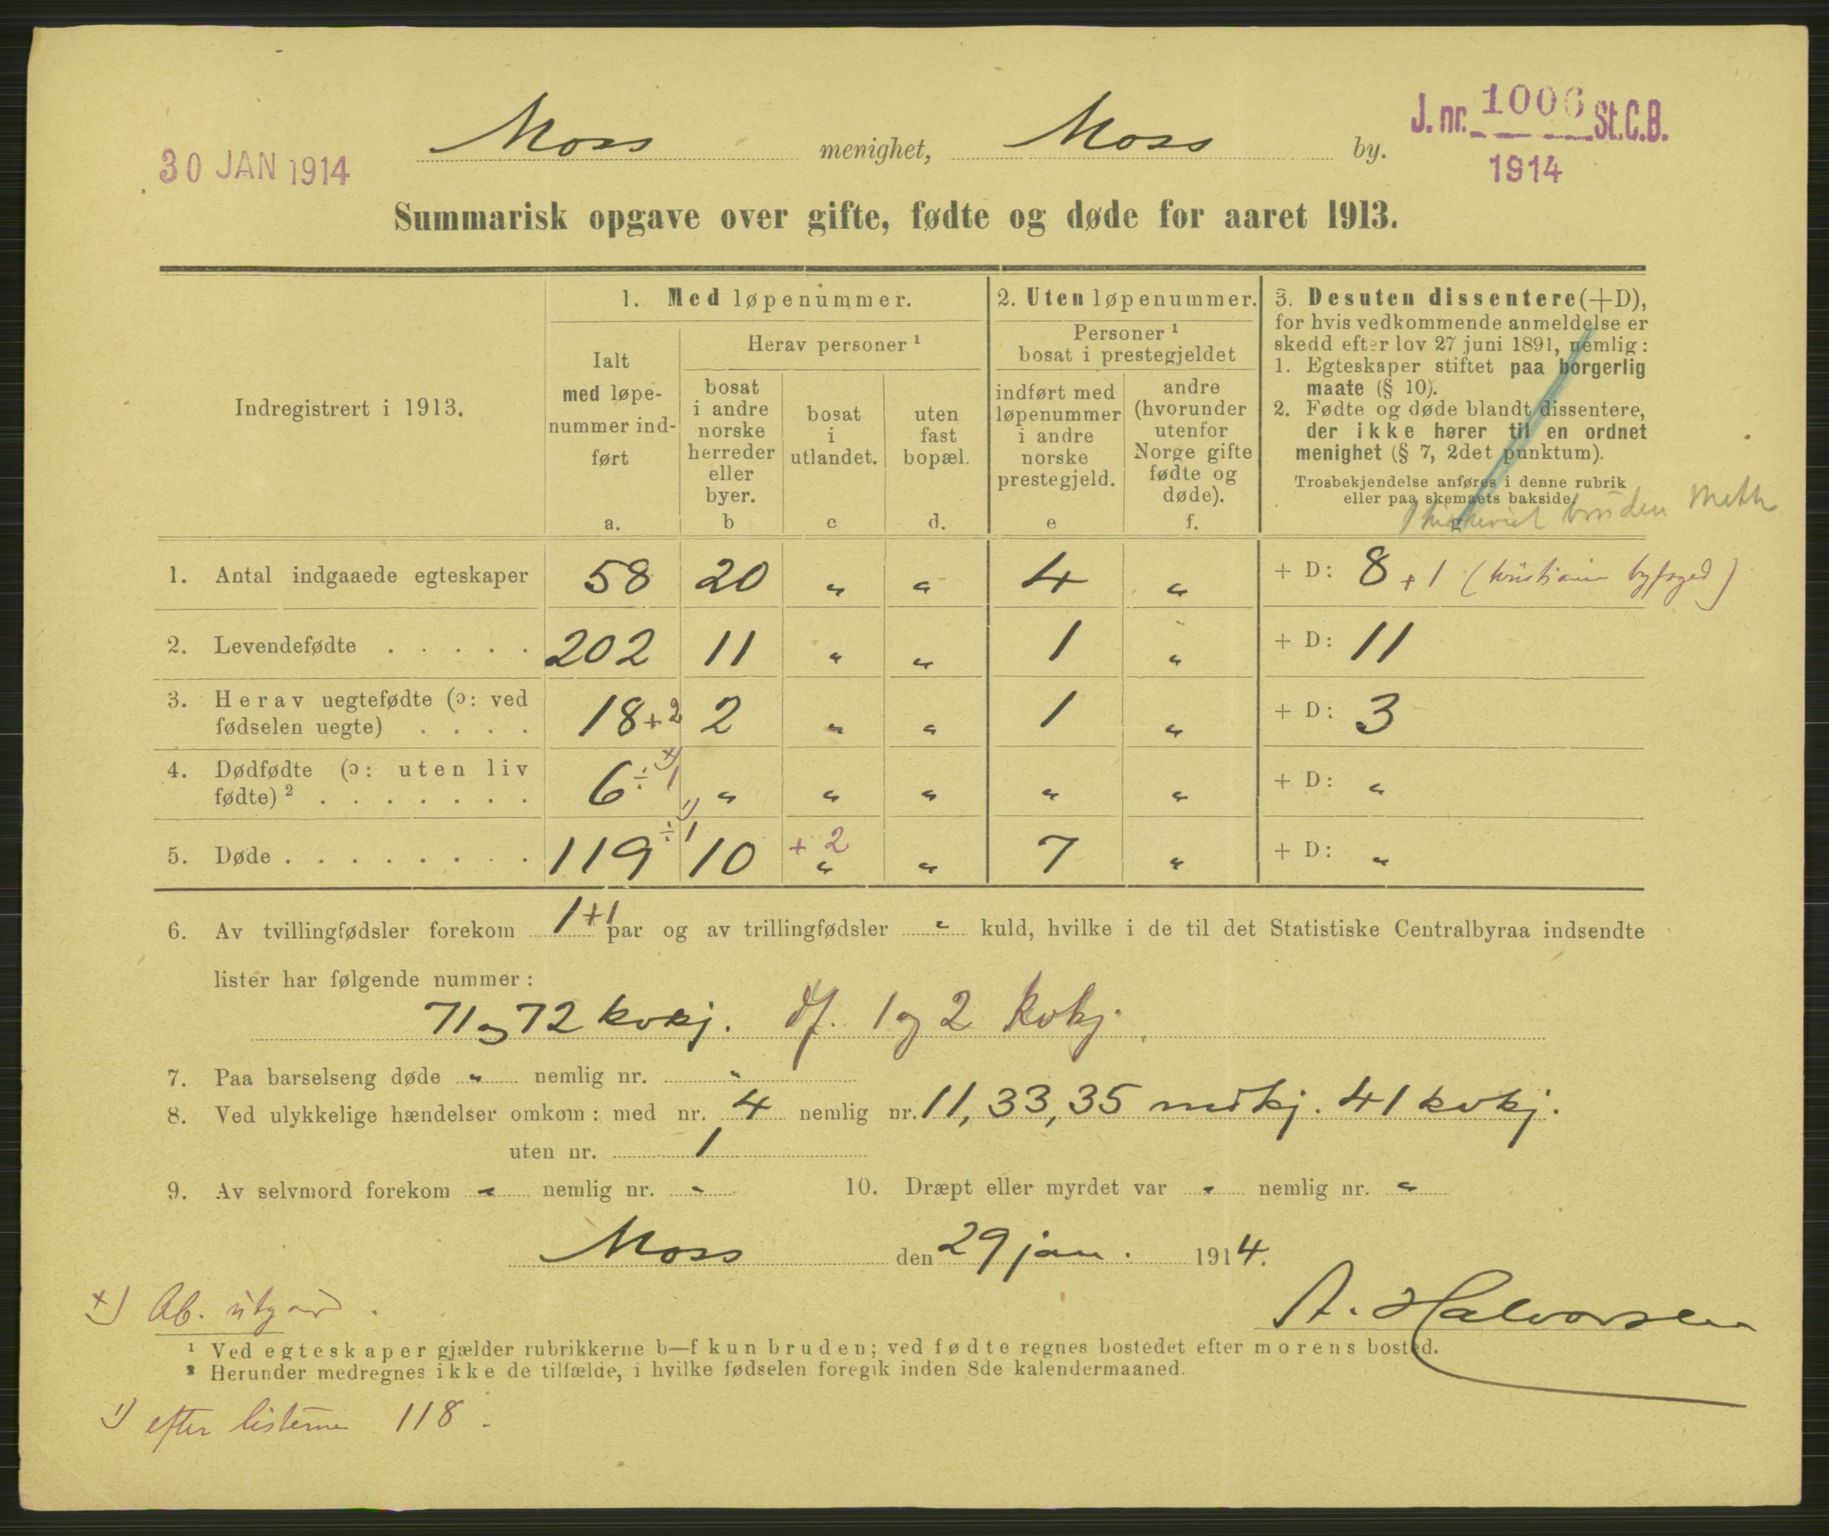 30 JAN 1914
Moss menighet, Moss by.
J. nr. 1006 St.C.B.
1914
Summarisk opgave over gifte, fødte og døde for aaret 1913.
Indregistrert i 1913.
1. Med løpenummer.
Ialt
med løpe-
nummer ind-
ført
a.
Herav personer ¹
bosat
i andre
norske
herreder
eller
byer.
b
bosat
i
utlandet.
c
uten
fast
bopæl.
d.
2. Uten løpenummer.
Personer ¹
bosat i prestegjeldet
indført med
løpenummer
i andre
norske
prestegjeld.
e
andre
(hvorunder
utenfor
Norge gifte
fødte og
døde).
f.
3. Desuten dissentere (+D),
for hvis vedkommende anmeldelse er
skedd efter lov 27 juni 1891, nemlig:
1. Egteskaper stiftet paa borgerlig
maate (§ 10).
2. Fødte og døde blandt dissentere,
der ikke hører til en ordnet
menighet (§ 7, 2det punktum).
Trosbekjendelse anføres i denne rubrik
eller paa skemaets bakside.
g
bruden Meth
1. Antal indgaaede egteskaper 58 20 " " 4 " + D: 8 + 1 (kristiania byfoged)
2. Levendefødte . . . . . 202 11 " " 1 " + D: 11
3. Herav uegtefødte (ɔ: ved
fødselen uegte) . . . . 18 + 2 2 " " 1 " + D: 3
4. Dødfødte (ɔ: uten liv
fødte) ² . . . . . . . 6 ÷ 1 x) " " " " " + D: "
5. Døde . . . . . . . . 119 ÷ 1 1) 10 + 2 " " 7 " + D: "
6. Av tvillingfødsler forekom 1 + 1 par og av trillingfødsler " kuld, hvilke i de til det Statistiske Centralbyraa indsendte
lister har følgende nummer:
71 og 72 kvkj. df. 1 og 2 kvkj.
7. Paa barselseng døde " nemlig nr. "
8. Ved ulykkelige hændelser omkom: med nr. 4 nemlig nr. 11, 33, 35 mdkj. 41 kvkj.
uten nr. 1
9. Av selvmord forekom " nemlig nr. " 10. Dræpt eller myrdet var " nemlig nr. "
Moss den 29 jan. 1914.
A. Halvorsen
x) Ab. utgaar.
¹ Ved egteskaper gjælder rubrikkerne b—f kun bruden; ved fødte regnes bostedet efter morens bosted.
² Herunder medregnes ikke de tilfælde, i hvilke fødselen foregik inden 8de kalendermaaned.
1) efter listerne 118.